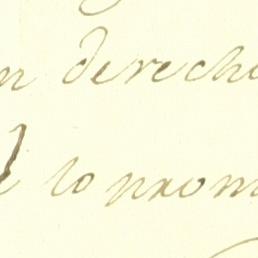 n derecho
lo prom